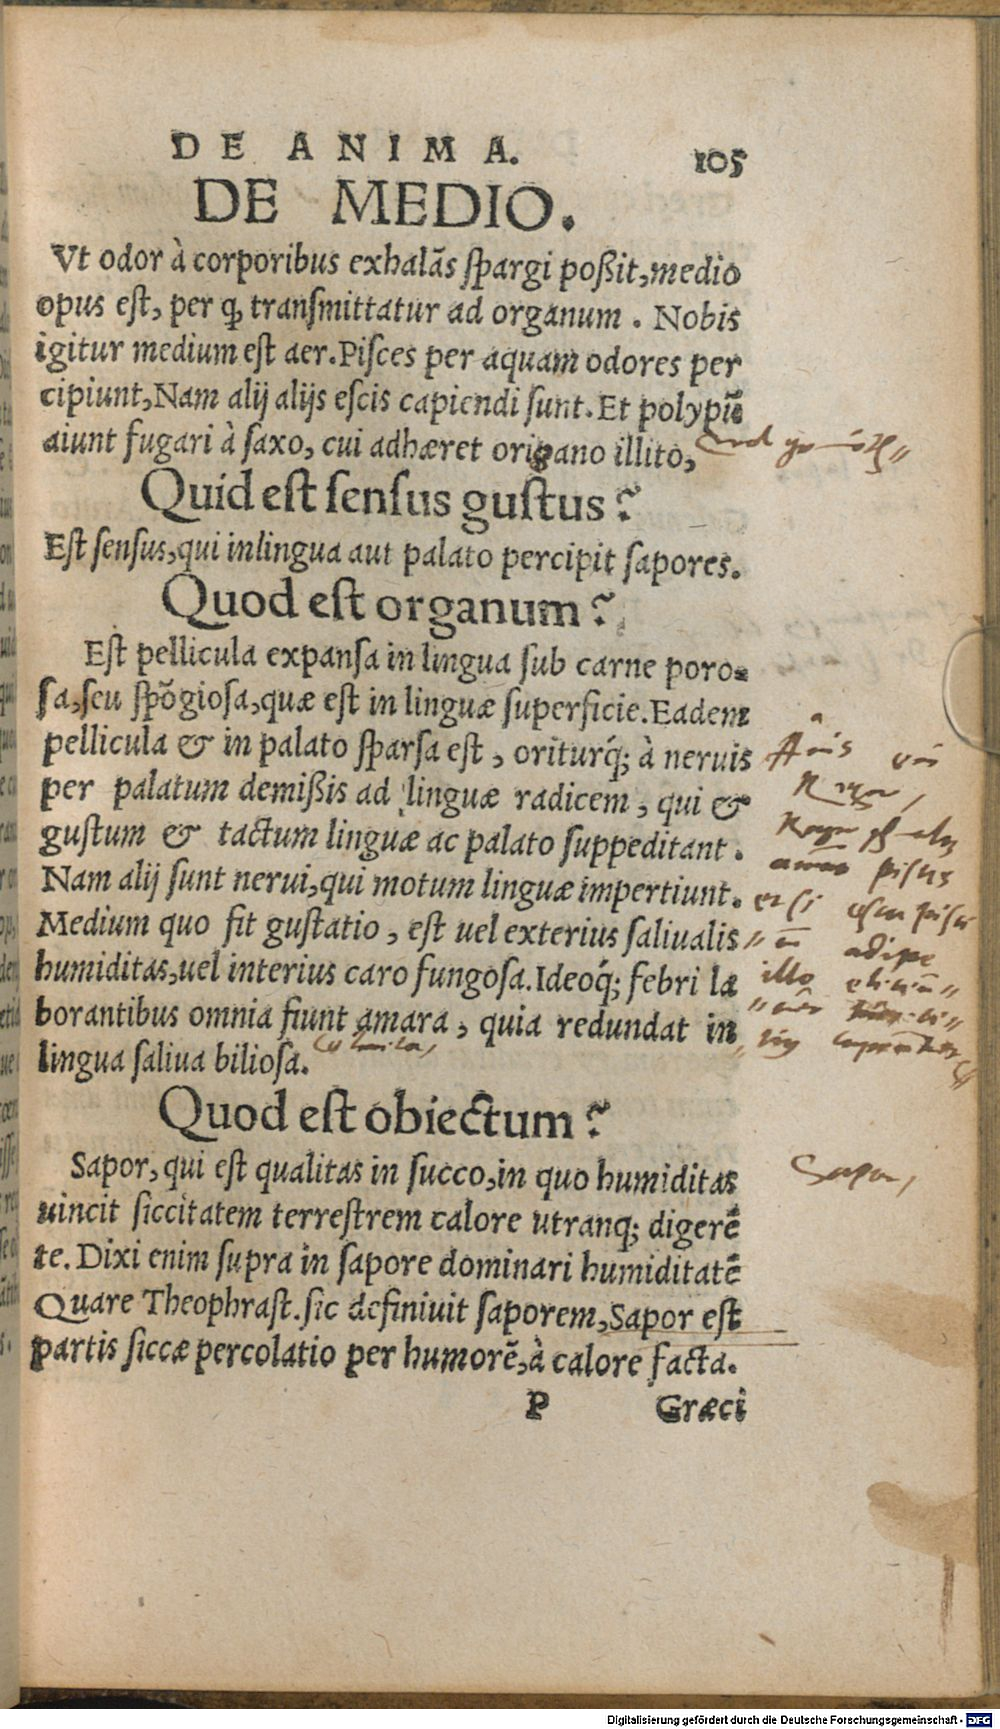 DE ANIMA. 105
DE MEDIO.
Vt odor à corporibus exhalãs ſpargi poßit,medio
opus eſt, per ꝙ tranſmittatur ad organum . Nobis
igitur medium eſt aer.Piſces per aquam odores per
cipiunt,Nam alij alijs eſcis capiendi ſunt.Et polypũ
aiunt fugari à ſaxo, cui adhæret origano illito,
Quid eſt ſenſus guſtus?
Eſt ſenſus,qui in lingua aut palato percipit ſapores.
Quod eſt organum?
Eſt pellicula expanſa in lingua ſub carne poro-
ſa,ſeu ſpõgioſa,quæ eſt in linguæ ſuperficie.Eadem
pellicula & in palato ſparſa eſt , oriturq́; à neruis
per palatum demißis ad linguæ radicem , qui &
guſtum & tactum linguæ ac palato ſuppeditant .
Nam alij ſunt nerui,qui motum linguæ impertiunt.
Medium quo fit guſtatio , eſt uel exterius ſaliualis
humiditas,uel interius caro fungoſa.Ideoq́; febri la
borantibus omnia fiunt amara , quia redundat in
lingua ſaliua bilioſa.
Quod eſt obiectum?
Sapor, qui eſt qualitas in ſucco,in quo humiditas
uincit ſiccitatem terreſtrem calore utranq; digerẽ
te. Dixi enim ſupra in ſapore dominari humiditatẽ
Quare Theophraſt.ſic definiuit ſaporem,Sapor eſt
partis ſiccæ percolatio per humorẽ,à calore facta.
P Græci
piſcis
adipe
illo
Sapor,
Digitalisierung gefördert durch die Deutsche Forschungsgemeinschaft - DFG